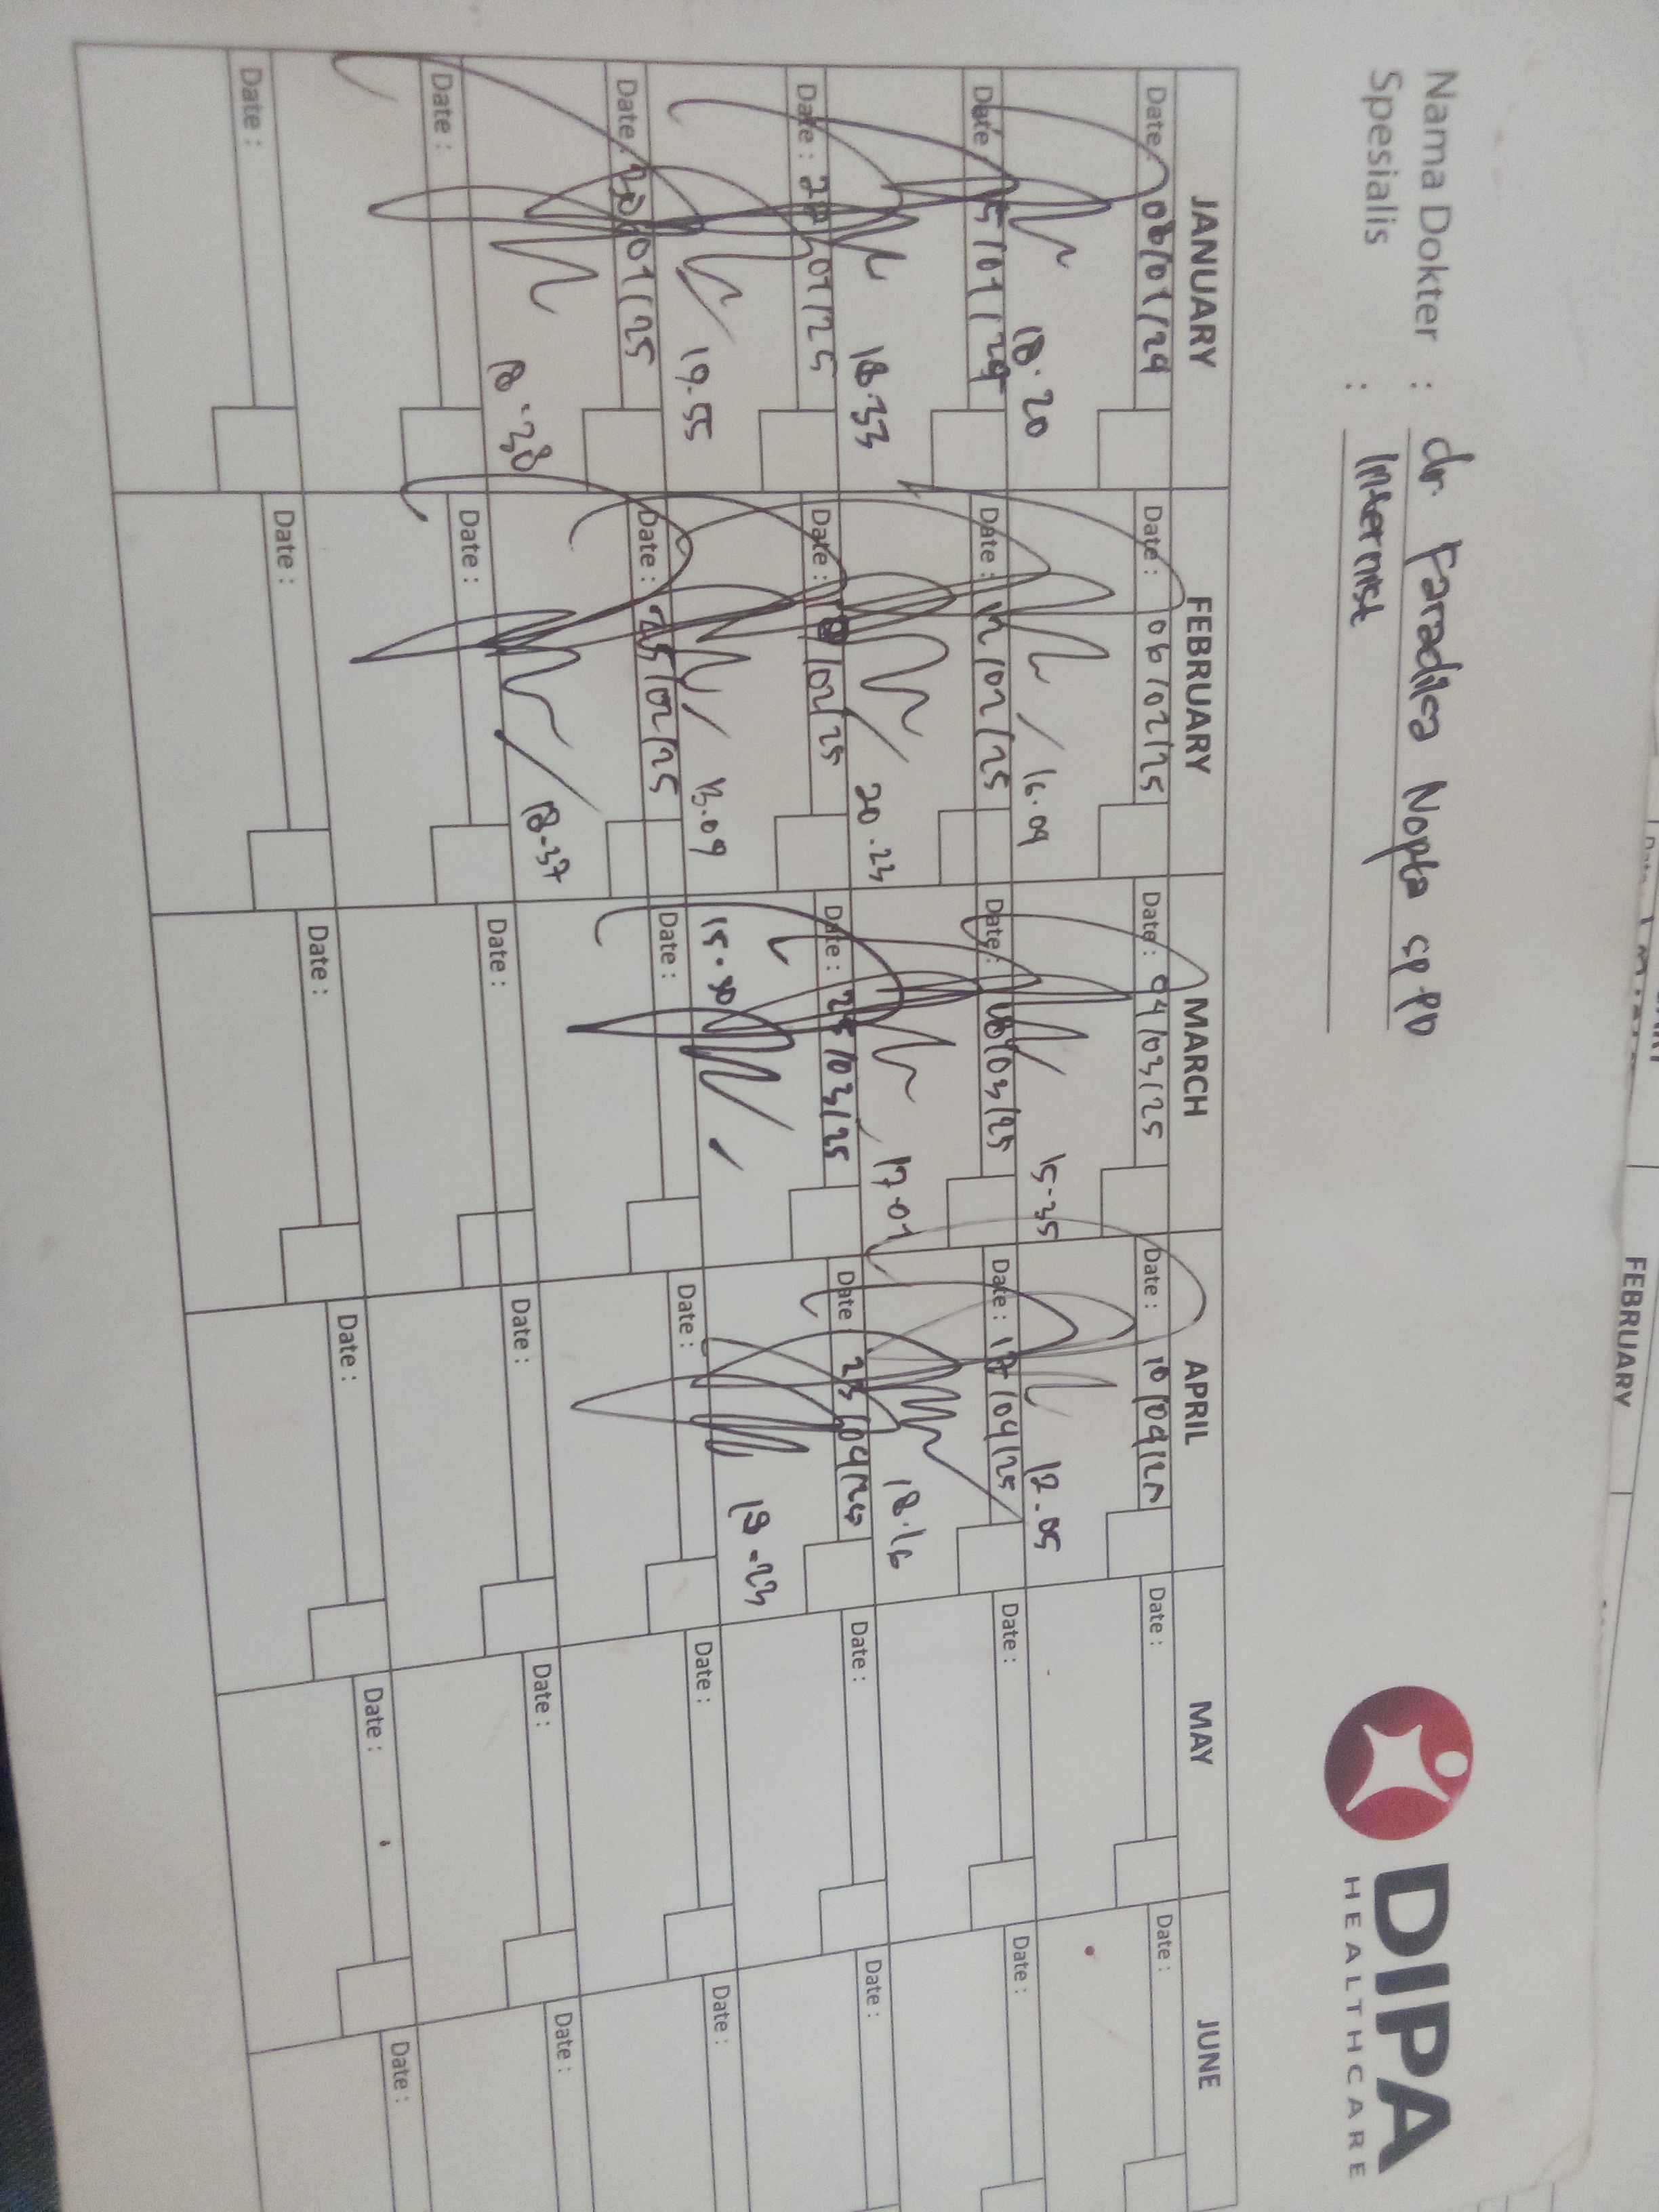 Nama Dokter : dr. Faradilsa Nopta Sp.PD
Spesialis : Internist
DIPA
HEALTHCARE
JANUARY FEBRUARY MARCH APRIL MAY JUNE
Date : 06/01/24 Date : 06/02/25 Date : 04/03/25 Date : 10/04/25 Date : Date :
18.20 16.09 15-35 12.05
Date : 15/01/24 Date : 12/02/25 Date : 18/03/25 Date : 17/04/25 Date : Date :
18.33 20.23 17.01 18.16
Date : 01/25 Date : /02/25 Date : 25/03/25 Date : 23/04/25 Date : Date :
19.55 13.09 15.30 19-23
Date : 30/01/25 Date : 25/02/25 Date : Date : Date : Date :
18.38 18-37
Date : Date : Date : Date : Date : Date :
Date : Date : Date : Date : Date : Date :
FEBRUARY